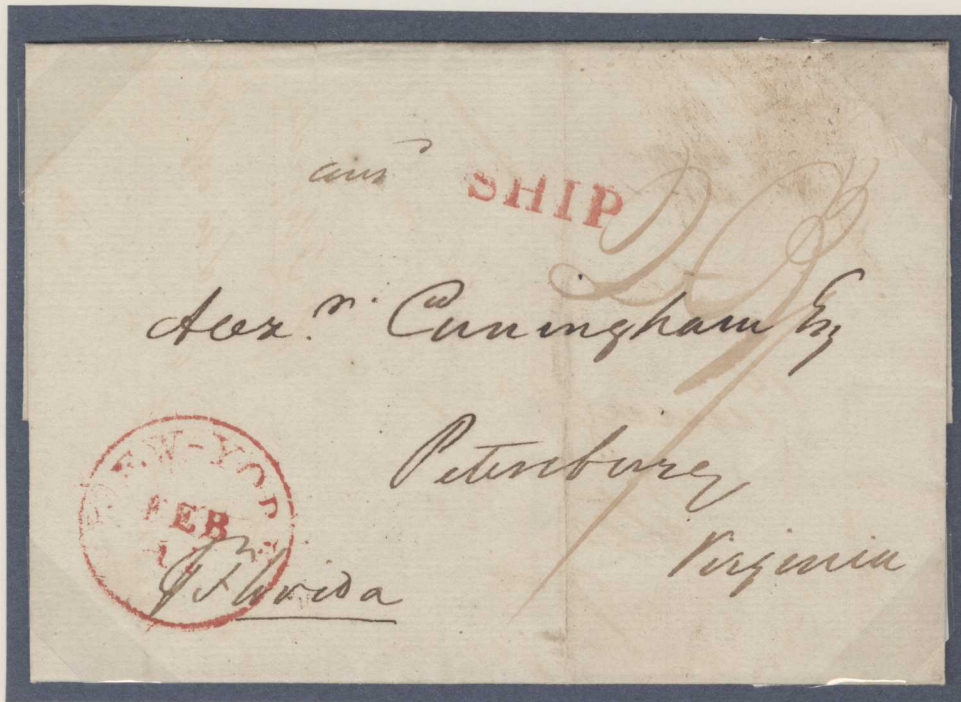 ansd SHIP
29
Alexr. Cuningham Esq
Petersburg
Virginia
NEW-YORK
FEB
Florida